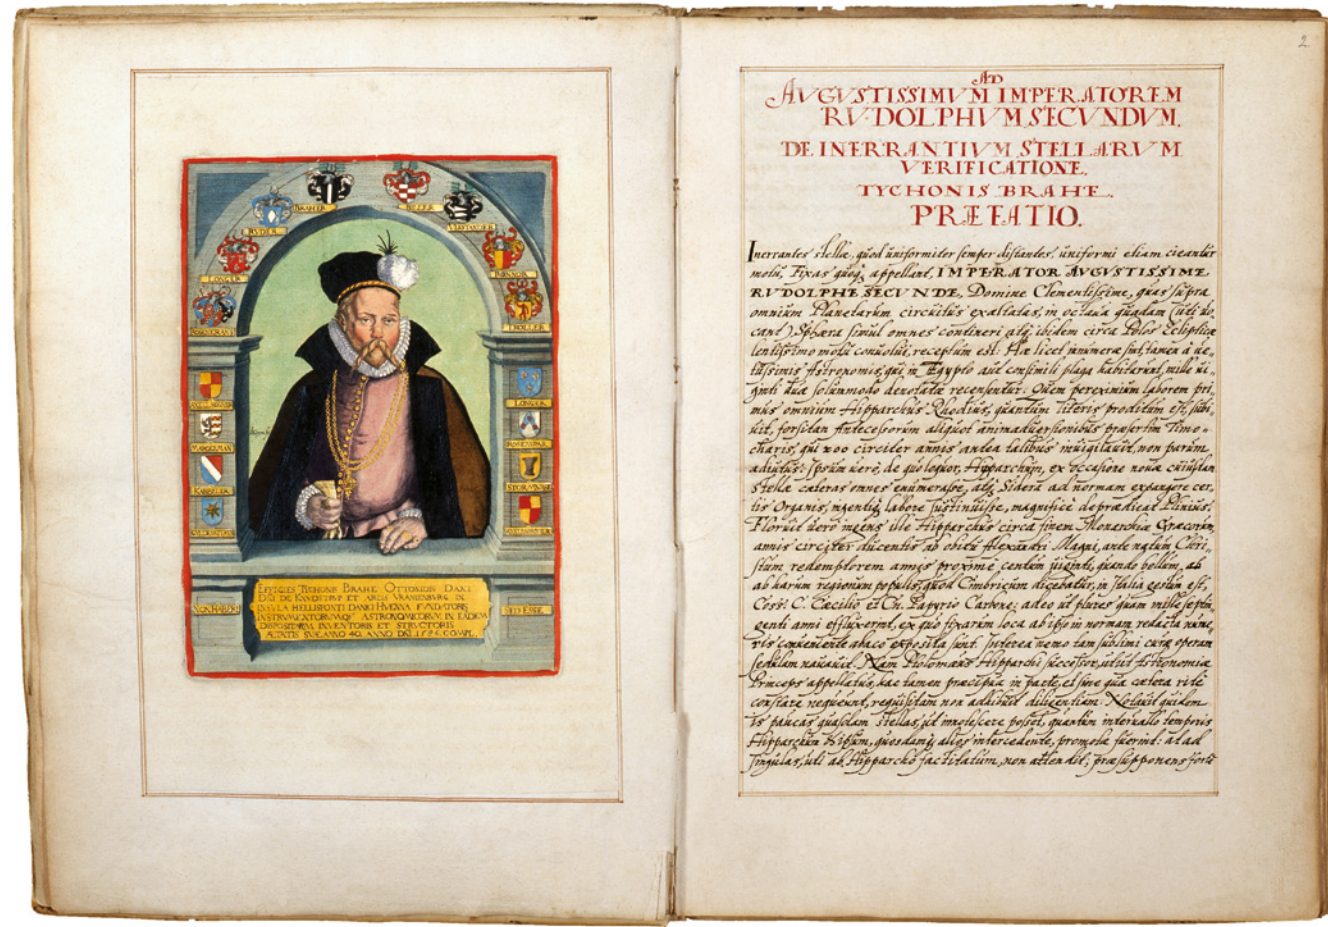 BRAHER
BILLER
RUDIER
LONGER
TROLLER
LONGER
EFFIGIES TYCHONIS BRAHE OTTONIDIS DANI
DÑI DE KNVDSTRVP ET ARCIS VRANIENBVRG IN
INSVLA HELLISPONTI DANICI HVENNA FVNDATORIS
INSTRVMENTORVMQ' ASTRONOMICORVM IN EADEM
DISPOSITORVM INVENTORIS ET STRVCTORIS
ÆTATIS SVÆ ANNO 40. ANNO DÑI 1586 COMPL.
2
AD
AVGVSTISSIMVM IMPERATOREM
RVDOLPHVM SECVNDVM.
DE INERRANTIVM STELLARVM
VERIFICATIONE.
TYCHONIS BRAHE.
PRÆFATIO.
Inerrantes stellæ, quod uniformiter semper distantes, uniformi etiam cieantur
motu, Fixas quoq; appellant, IMPERATOR AVGVSTISSIME
RVDOLPHE SECVNDE, Domine Clementissime, quas supra
omnium Planetarum circuitus exaltatas, in octaua quadam (uti uo-
cant) Sphæra simul omnes contineri atq; ibidem circa Polos Eclipticæ
lentissimo motu conuolui, receptum est: Hæ licet innumeræ sint, tamen a ue-
tustissimis Astronomis, qui in Ægypto aut consimili plaga habitarunt, mille ui-
ginti duæ solummodo denotatæ recensentur. Quem pereximium laborem pri-
mus omnium Hipparchus Rhodius, quantum literis proditum est, subi-
uit, forsitan Antecessorum aliquot animaduersionibus præsertim Timo-
charis, qui 200 circiter annis antea talibus inuigilauit, non parum
adiutus. Ipsum uero, de quo loquor, Hipparchum, ex occasione nouæ cuiusdam
Stellæ cæteras omnes enumerasse, atq; Sidera ad normam expangere cer-
tis Organis, ingentiq; labore sustinuisse, magnificè deprædicat Plinius.
Floruit uero ingens ille Hipparchus circa finem Monarchiæ Græcorum,
annis circiter ducentis ab obitu Alexandri Magni, ante natum Chri-
stum redemptorem annis proxime centum uiginti, quando bellum, ab
ab harum regionum populis, quod Cimbricum dicebatur, in Italia gestum est,
Coss: C. Cæcilio et Cn. Papyrio Carbone; adeo ut plures quam mille septin-
genti anni effluxerint, ex quo fixarum loca ab ipso in normam redacta nume-
ris conueniente abaco exposita sunt. Interea nemo tam sublimi curæ operam
sedulam nauauit. Nam Ptolomæus Hipparchi successor, utut Astronomiæ
Princeps appellatus, hac tamen præcipua in parte, et sine qua cætera ritè
constare nequeunt, requisitam non adhibuit diligentiam. Notauit quidem
is paucas quasdam stellas, ut innotescere posset, quantum interuallo temporis
Hipparchum & ipsum, quosdamq; alios intercedente, promotæ fuerint: at ad
singulas, uti ab Hipparcho factitatum, non attendit; præsupponens forte